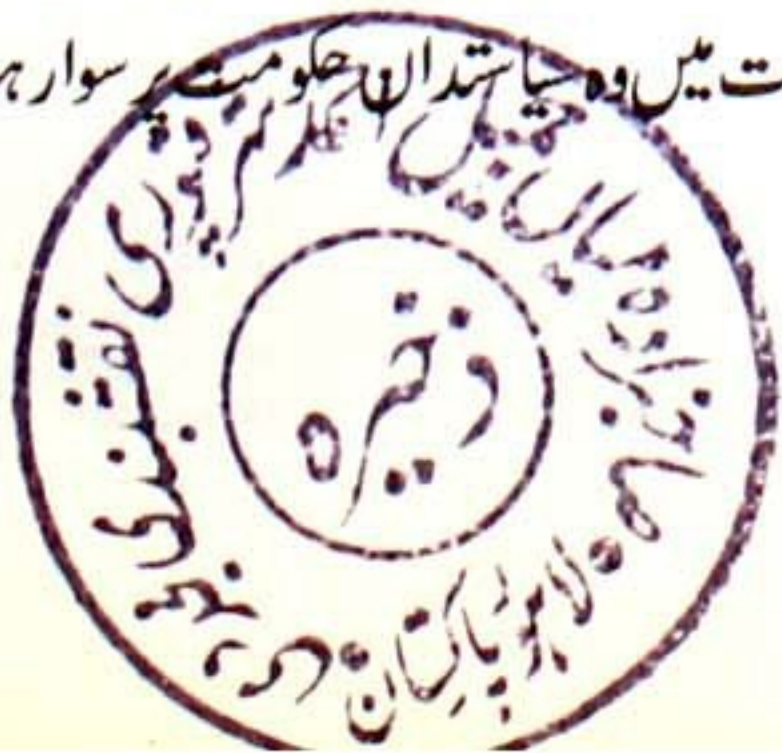 ت میں وہ سیاستدان حکومت پر سوار ہ
صاحبزادہ میاں جمیل احمد شرقپوری نقشبندی مجددی
لاہور پاکستان
ذخیرہ